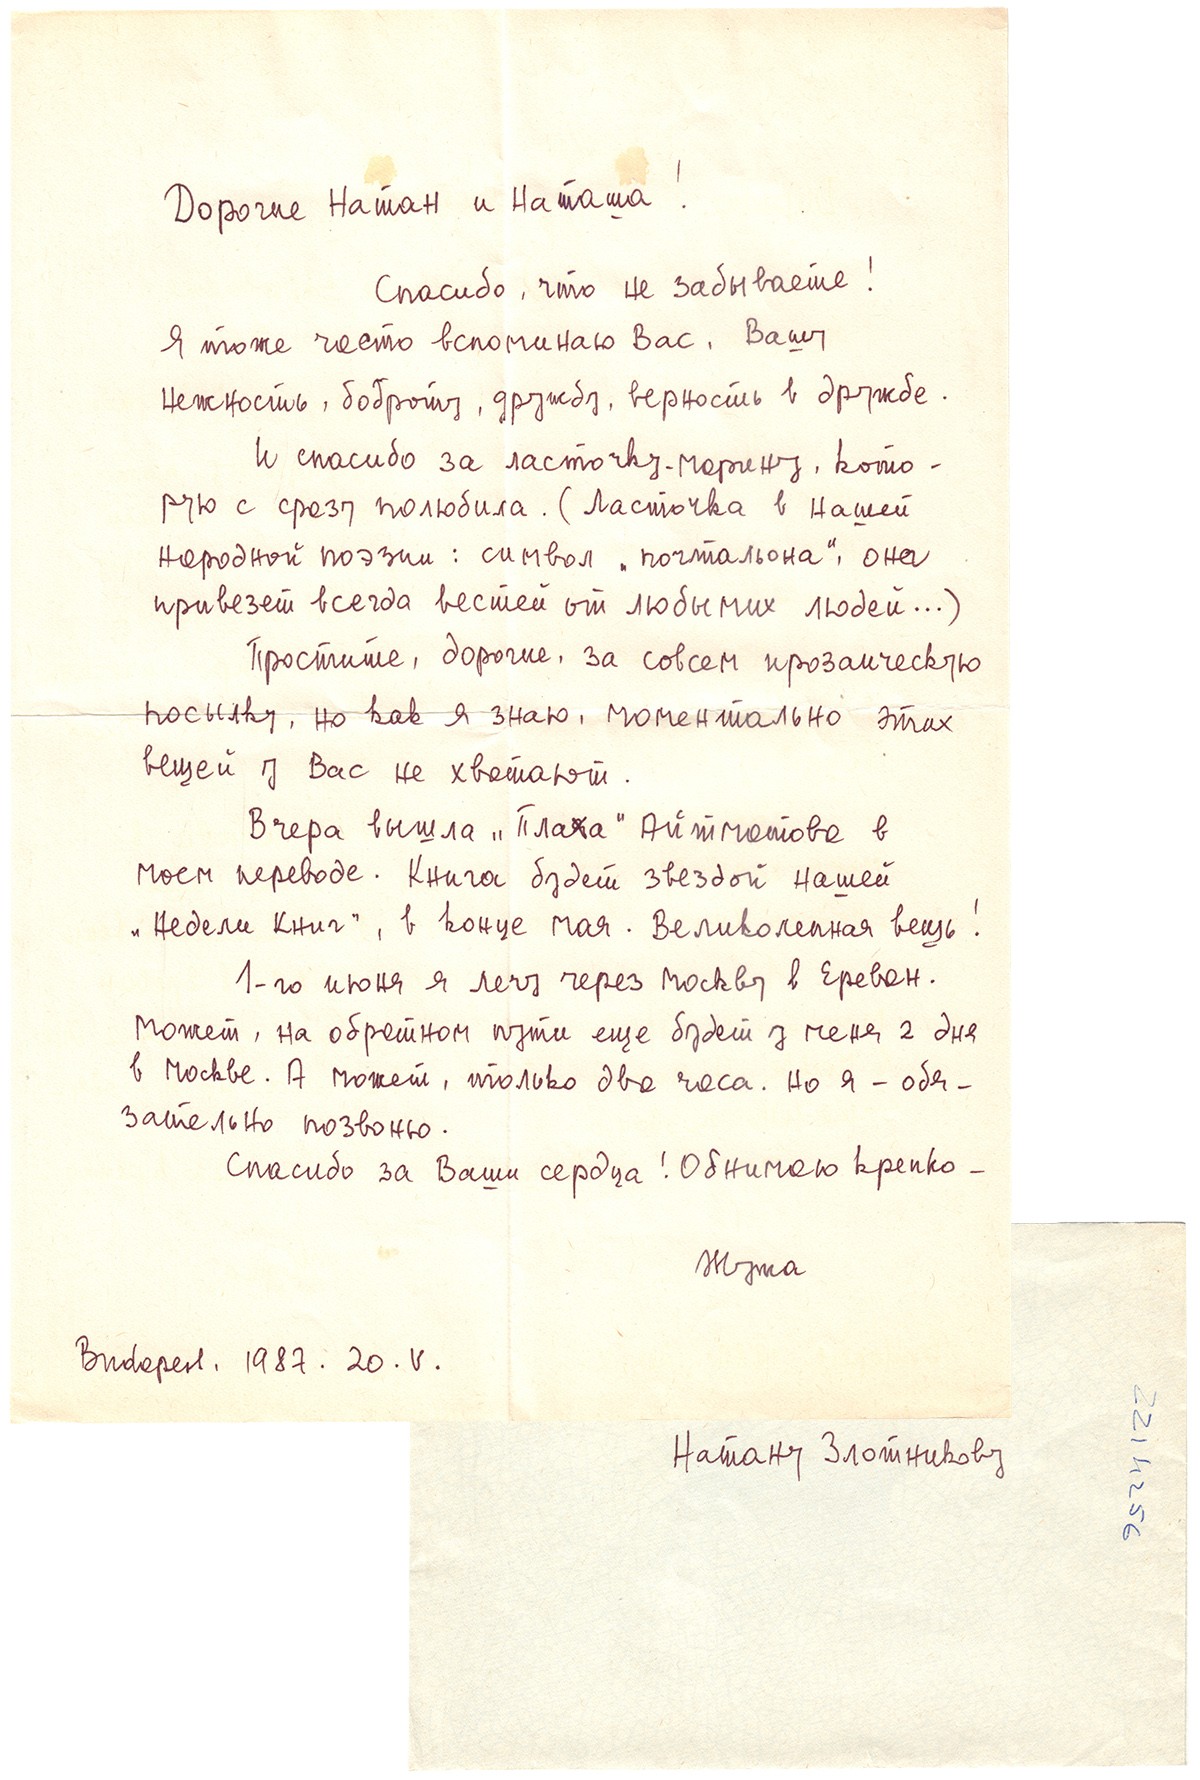 Дорогие Натан и Наташа!
Спасибо, что не забываете!
Я тоже часто вспоминаю Вас, Вашу
нежность, доброту, дружбу, верность в дружбе.
И спасибо за ласточку-марину, кото-
рую с сразу полюбила. (Ласточка в нашей
народной поэзии: символ „почтальона", она
привезет всегда вестей от любымих людей...)
Простите, дорогие, за совсем прозаическую
посылку, но как я знаю, моментально этих
вещей у Вас не хватают.
Вчера вышла „Плаха" Айтматова в
моем переводе. Книга будет звездой нашей
„Недели Книг", в конце мая. Великолепная вещь!
1-го июня я лечу через Москву в Ереван.
Может, на обратном пути еще будет у меня 2 дня
в Москве. А может, только два часа. Но я – обя-
зательно позвоню.
Спасибо за Ваши сердца! Обнимаю крепко –
Жужа
Budapest, 1987. 20. V.
Натану Злотникову
2214256